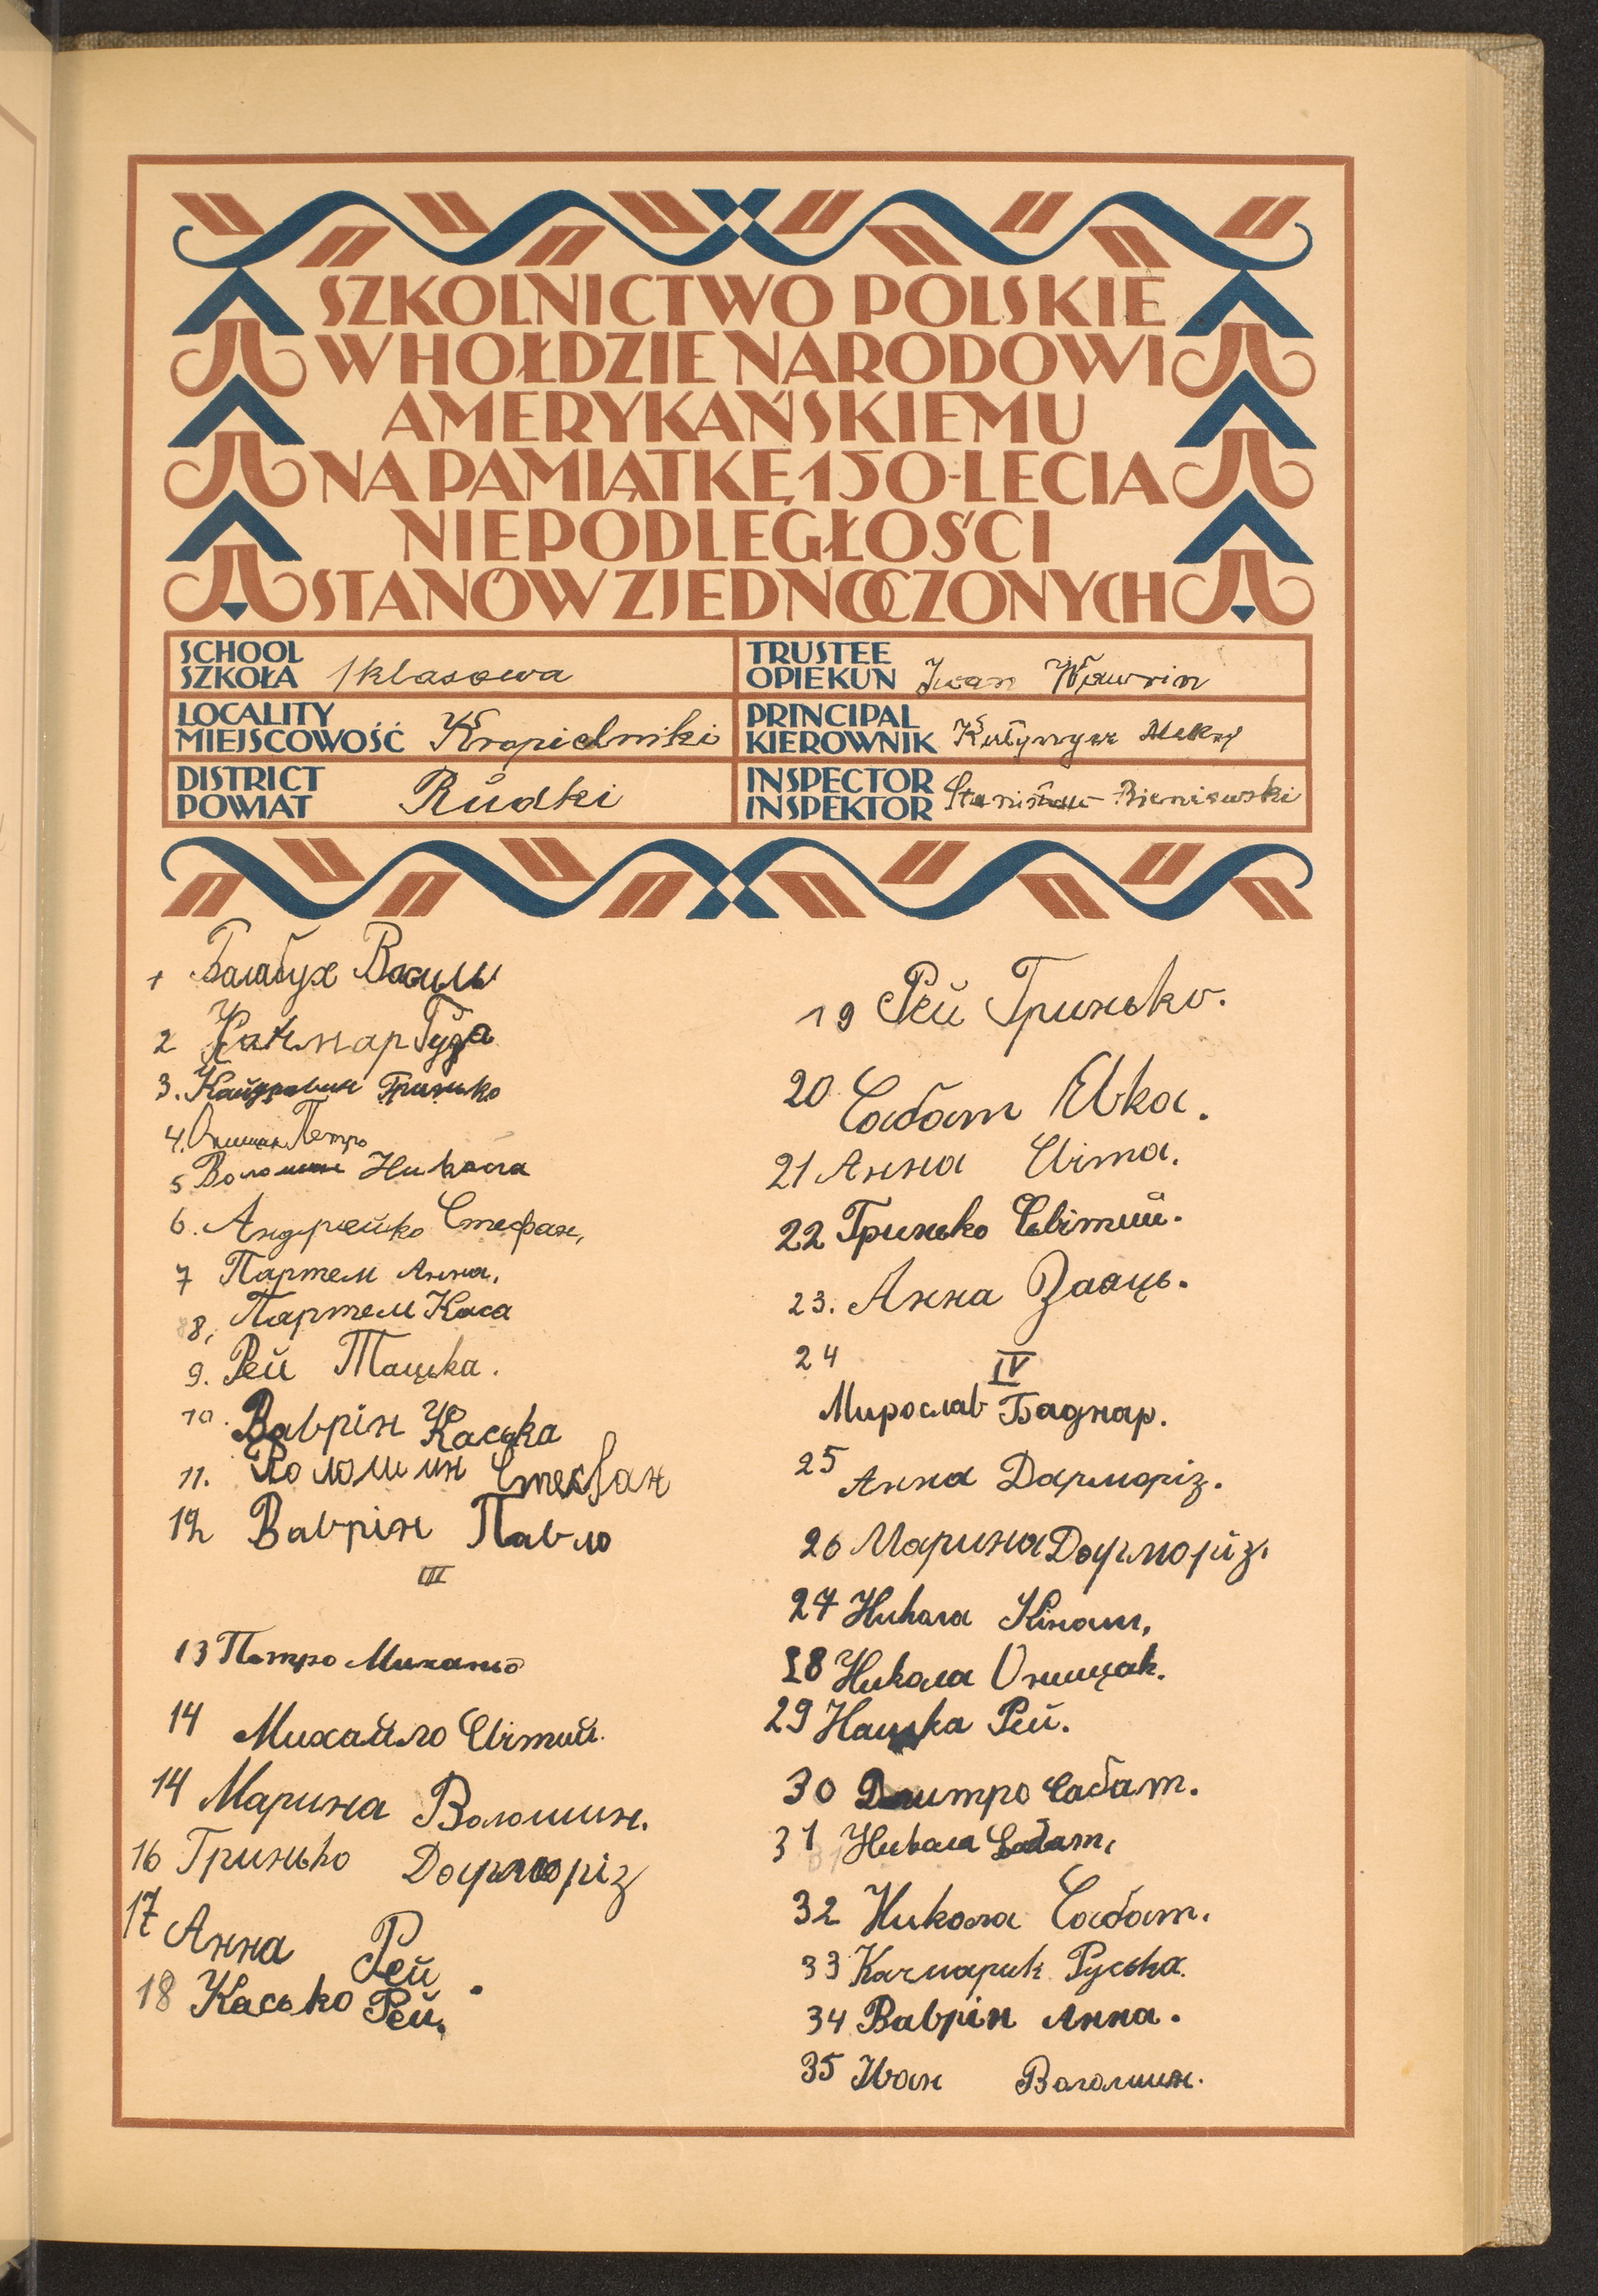 SZKOLNICTWO POLSKIE
W HOŁDZIE NARODOWI
AMERYKAŃSKIEMU
NA PAMIĄTKĘ 150-LECIA
NIEPODLEGŁOŚCI
STANÓW ZJEDNOCZONYCH
SCHOOL
SZKOŁA 1 klasowa
TRUSTEE
OPIEKUN Iwan Wawrin
LOCALITY
MIEJSCOWOŚĆ Kropielniki
PRINCIPAL
KIEROWNIK
DISTRICT
POWIAT Rudki
INSPECTOR
INSPEKTOR Stanisław Bieniewski
1 Балабух Василь
2
3. Гринько
4. Онишчак Петро
5 Волошин Никола
6. Андрейко Стефан,
7 Партем Анна,
8, Партем Каса
9. Рей Тацька.
10. Ваврін Каська
11. Волошин Стефан
12 Ваврін Павло
III
13 Петро
14 Михайло Світий.
14 Марина Волошин.
16 Гринько Дарморіз
17 Анна Рей
18 Касько Рей.
19 Рей Гринько.
20 Сабат Евка.
21 Анна Світа.
22 Гринько Світий.
23. Анна Заяць.
24 IV
Мирослав Баднар.
25 Анна Дарморіз.
26 Марина Дарморіз.
27 Никола Кінаш,
28 Никола Онищак.
29 Нацька Рей.
30 Дмитро Сабат.
31 Никола Сабат,
32 Никола Сабат.
33 Качмарик Руська.
34 Ваврін Анна.
35 Иван Волошин.